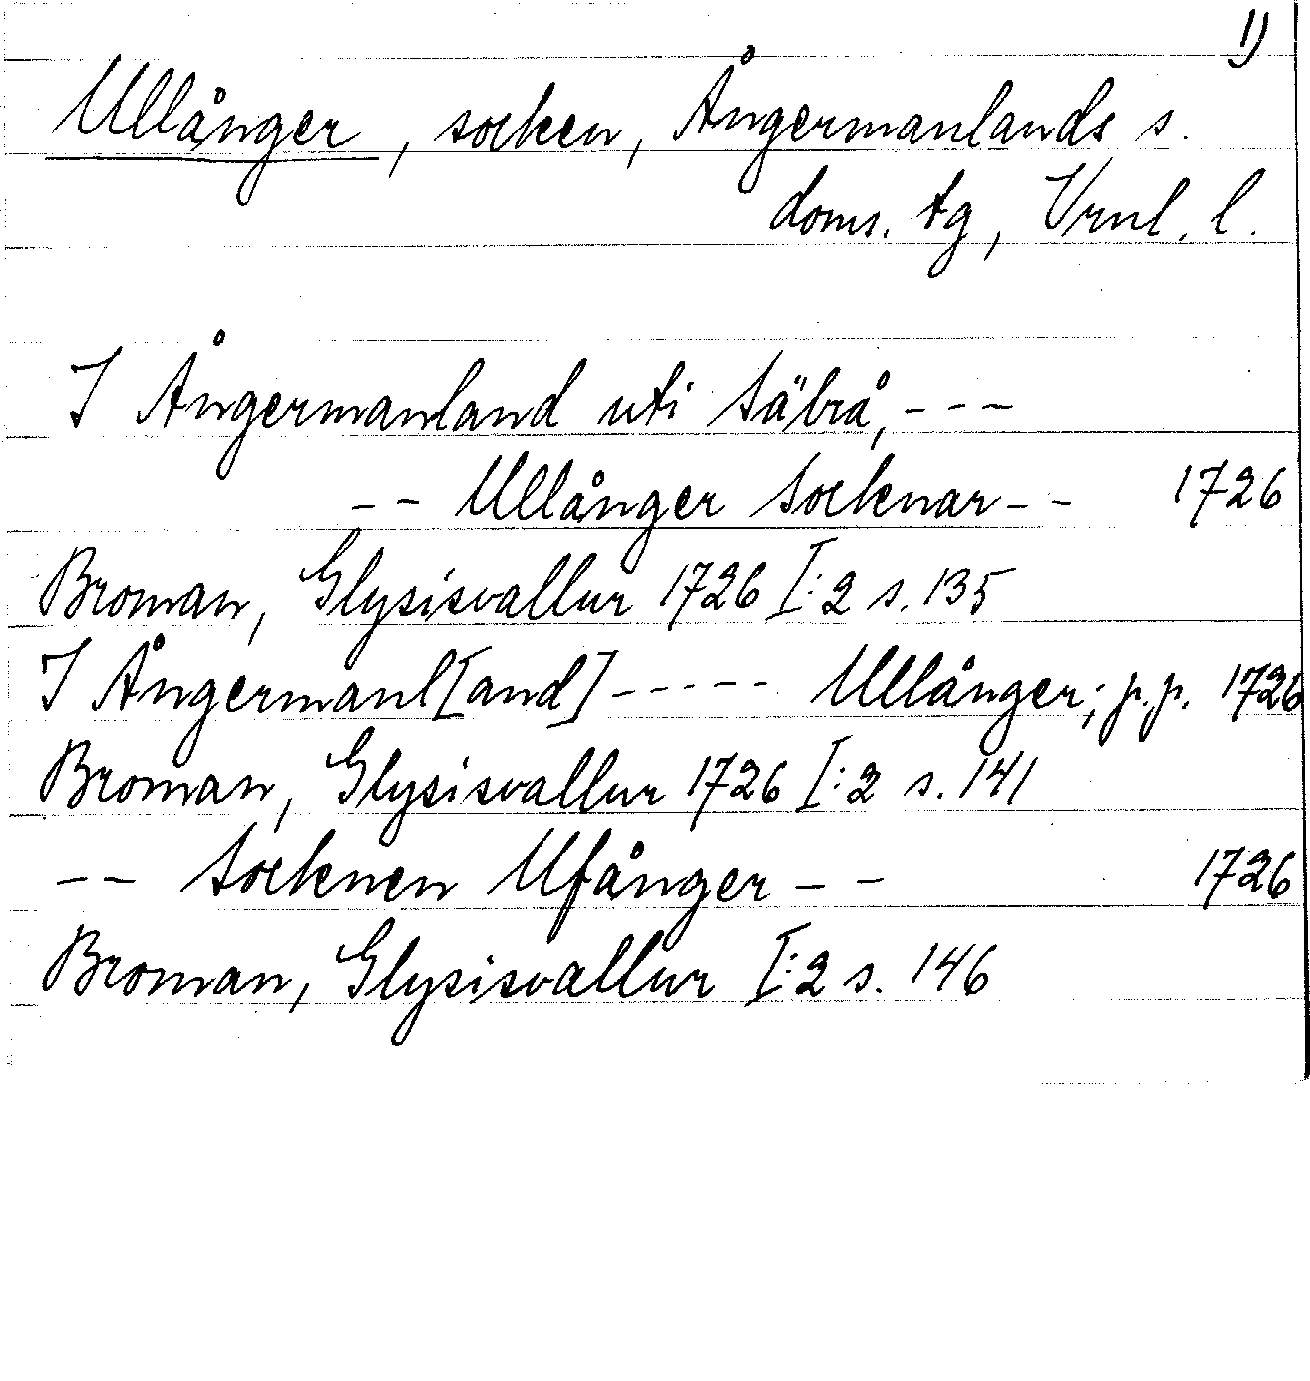 1)
Ullånger, socken, Ångermanlands s.
doms. tg, Vrnl. l.
I Ångermanland uti Säbrå, - - -
- - Ullånger Socknar - - 1726
Broman, Glysisvallur 1726 I:2 s. 135
I Ångermanl[and] - - - - - Ullånger; p.p. 1726
Broman, Glysisvallur 1726 I:2 s. 141
- - Socknen Ufånger - - 1726
Broman, Glysisvallur I:2 s. 146